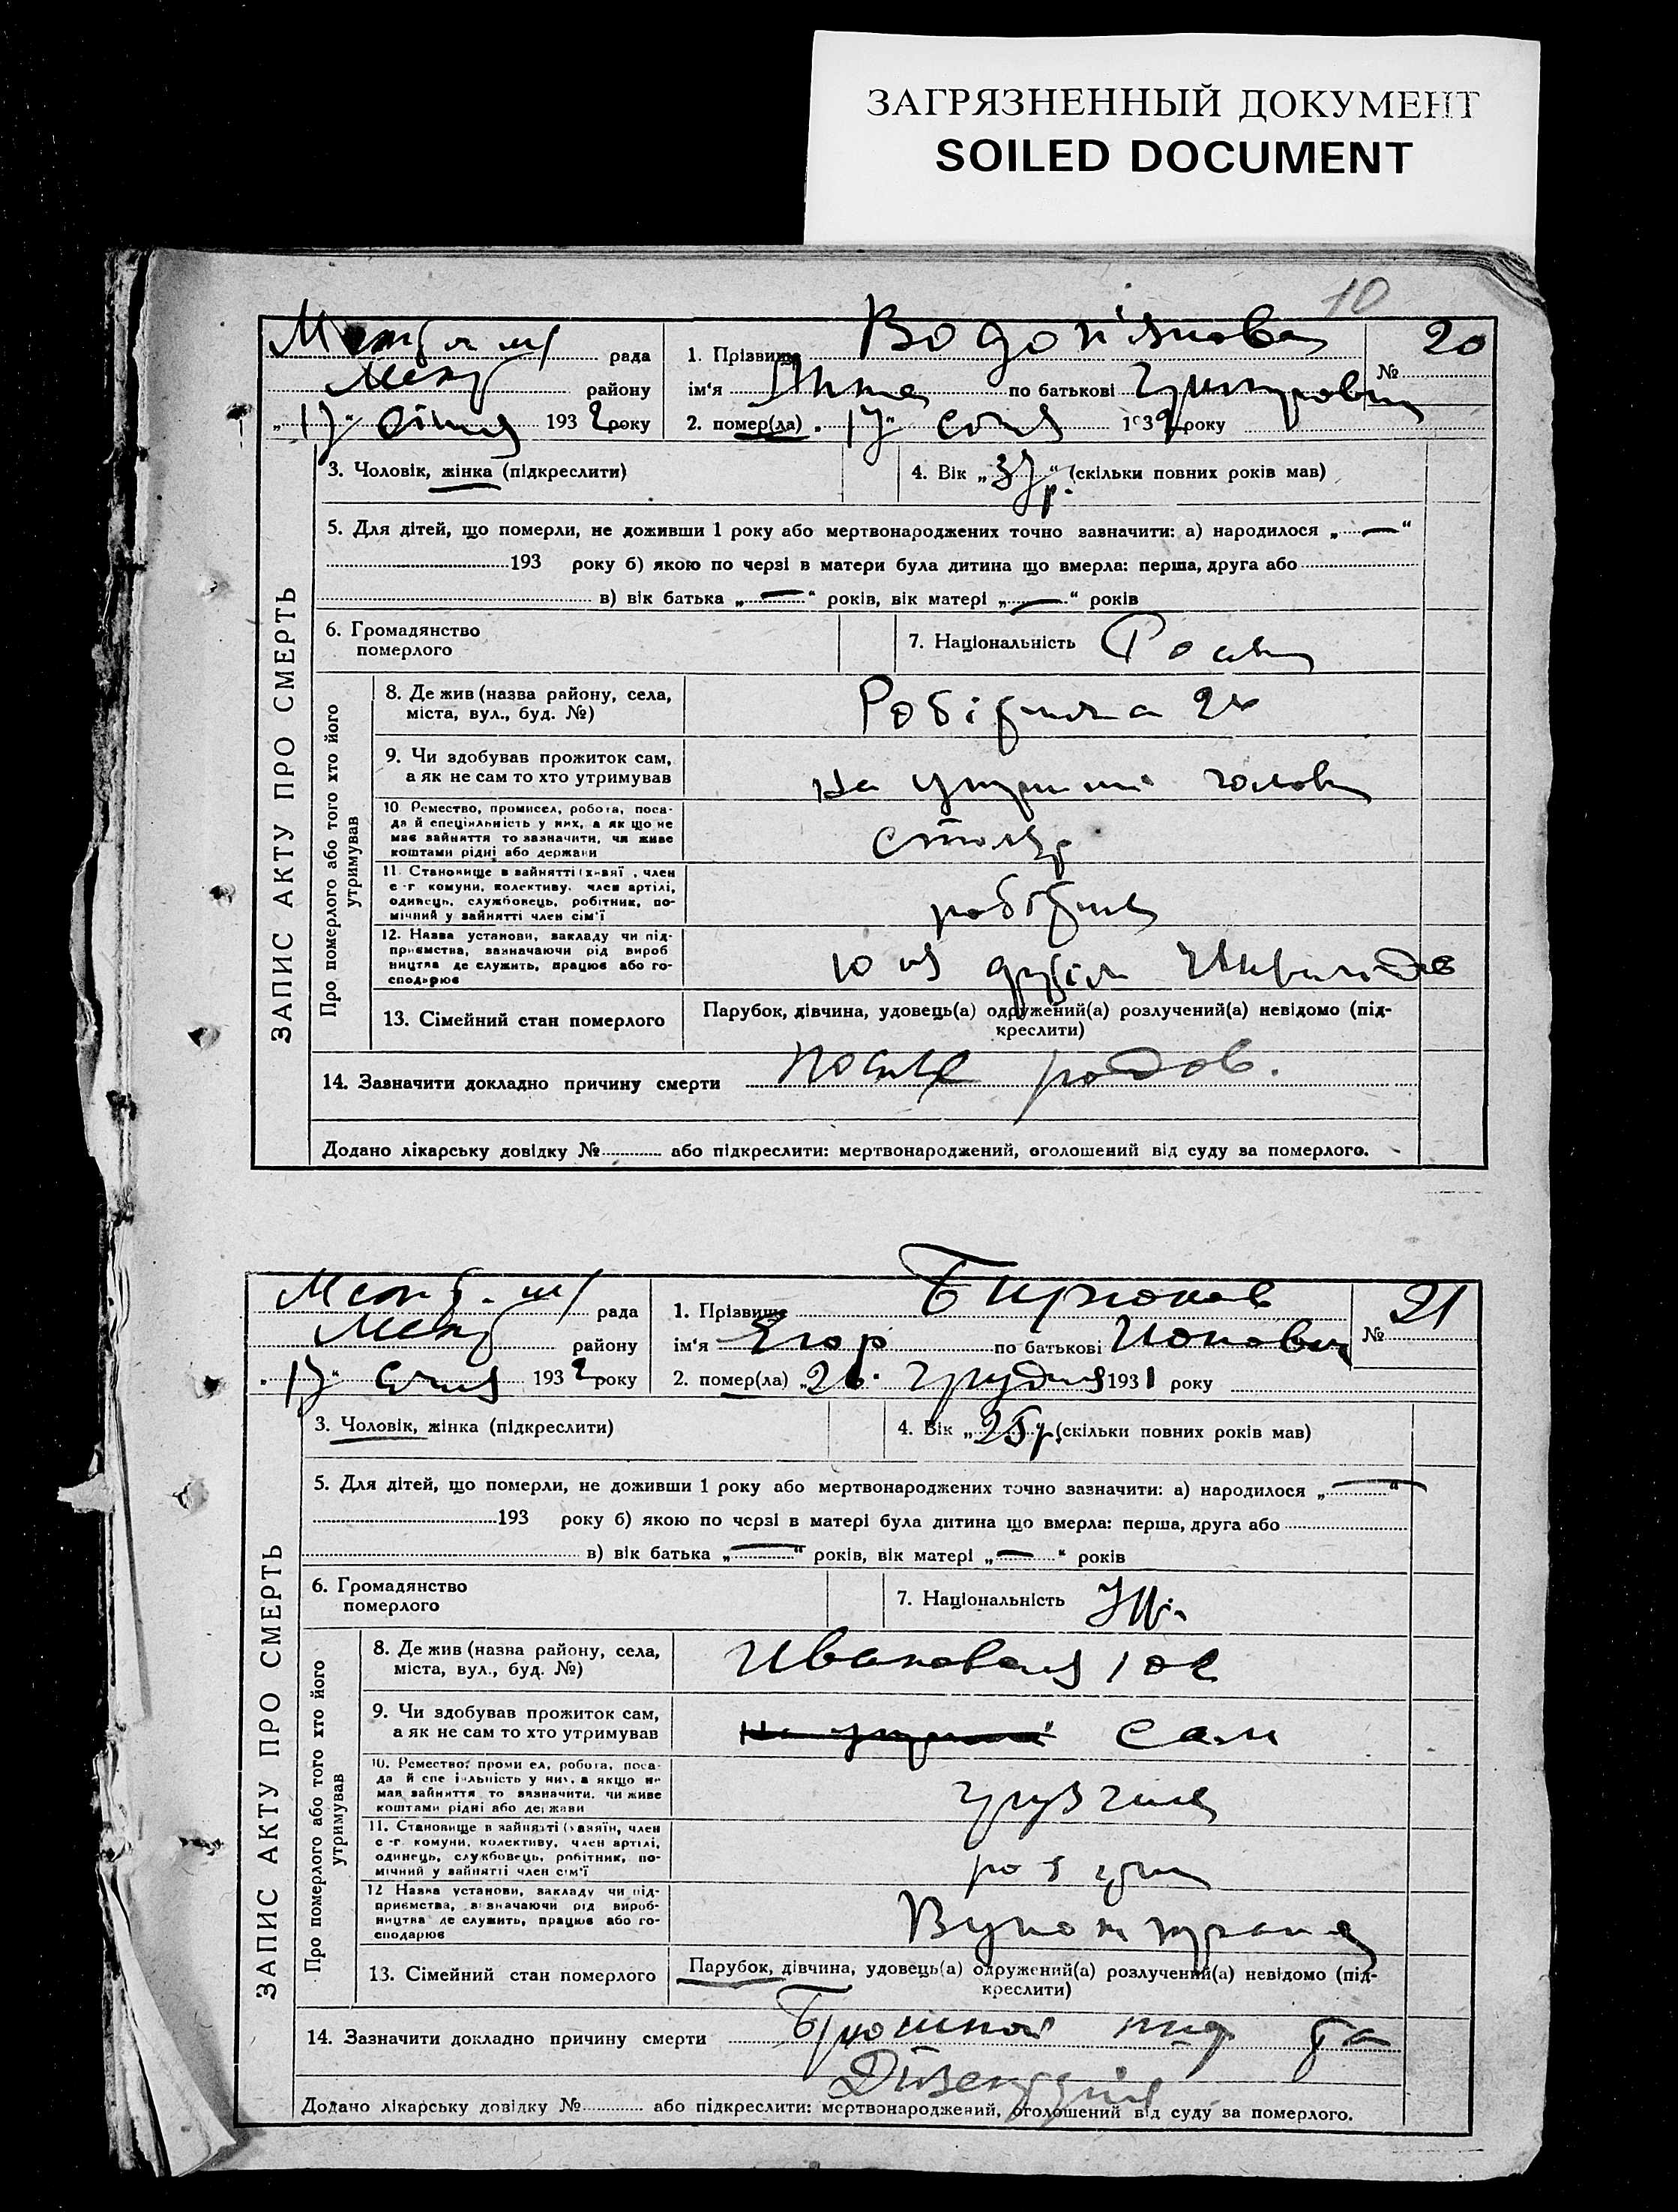 ЗАГРЯЗНЕННЫЙ ДОКУМЕНТ
SOILED DOCUMENT
10
рада
району
„17“ січня 1932 року
1. Прізвище Водоп'янова
ім‘я Анна по батькові
№ 20
2. помер(ла) „17“ січня 1932 року
ЗАПИС АКТУ ПРО СМЕРТЬ
3. Чоловік, жінка (підкреслити)
4. Вік „37 р.“ (скільки повних років мав)
5. Для дітей, що померли, не доживши 1 року або мертвонароджених точно зазначити: а) народилося „—“
193 року б) якою по черзі в матери була дитина що вмерла: перша, друга або
в) вік батька „—“ років, вік матері „—“ років
6. Громадянство
померлого
7. Національність
Про померлого або того хто його
утримував
8. Де жив (назва району, села,
міста, вул., буд. №)
9. Чи здобував прожиток сам,
а як не сам то хто утримував
10. Ремество, промисел, робота, поса-
да й спеціяльність у них, а як що не
має зайняття то зазначити, чи живе
коштами рідні або держави
столяр
11. Становище в зайнятті (хазяїн, член
с-г. комуни, колективу, член артілі,
одинець, службовець, робітник, по-
мічний у зайнятті член сім'ї
робітник
12. Назва установи, закладу чи під-
приємства, зазначаючи рід вироб
ництва де служить, працює або го-
сподарює
13. Сімейний стан померлого
Парубок, дівчина, удовець(а) одружений(а) розлучений(а) невідомо (під-
креслити)
14. Зазначити докладно причину смерти после родов.
Додано лікарську довідку № або підкреслити: мертвонароджений, оголошений від суду за померлого.
рада
району
„17“ січня 1932 року
1. Прізвище Бирюков
ім‘я Егор по батькові Ионович
№ 21
2. помер(ла) „26. грудня 1931 року
ЗАПИС АКТУ ПРО СМЕРТЬ
3. Чоловік, жінка (підкреслити)
4. Вік „25 р. (скільки повних років мав)
5. Для дітей, що померли, не доживши 1 року або мертвонароджених точно зазначити: а) народилося „—“
193 року б) якою по черзі в матері була дитина що вмерла: перша, друга або
в) вік батька „—“ років, вік матері „—“ років
6. Громадянство
померлого
7. Національність
Про померлого або того хто його
утримував
8. Де жив (назва району, села,
міста, вул., буд. №)
9. Чи здобував прожиток сам,
а як не сам то хто утримував
сам
10. Ремество, промисел, робота, поса-
да й спеціяльність у них, а якщо не
має зайняття то зазначити, чи живе
коштами рідні або держави
грузчик
11. Становище в зайнятті (хазяїн, член
с-г. комуни, колективу, член артілі,
одинець, службовець, робітник, по-
мічний у зайнятті член сім'ї
12 Назва установи, закладу чи під-
приємства, зазначаючи рід вироб-
ництва де служить, працює або го-
сподарює
13. Сімейний стан померлого
Парубок, дівчина, удовець(а) одружений(а) розлучений(а) невідомо (під-
креслити)
14. Зазначити докладно причину смерти Брюшной тиф та
Додано лікарську довідку № або підкреслити: мертвонароджений, оголошений від суду за померлого.